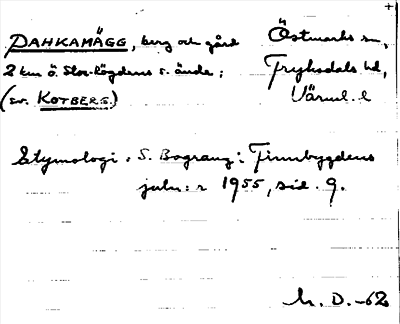 DAHKAMÄGG, berg och gård
2 km ö. Stor-högdens s. ände;
(sv. KOTBERG.)
Östmarks sn,
Fryksdals hd,
Värml. l
Etymologi: S. Bograng: Finnbygdens
julnr 1955, sid. 9.
M. D. -62